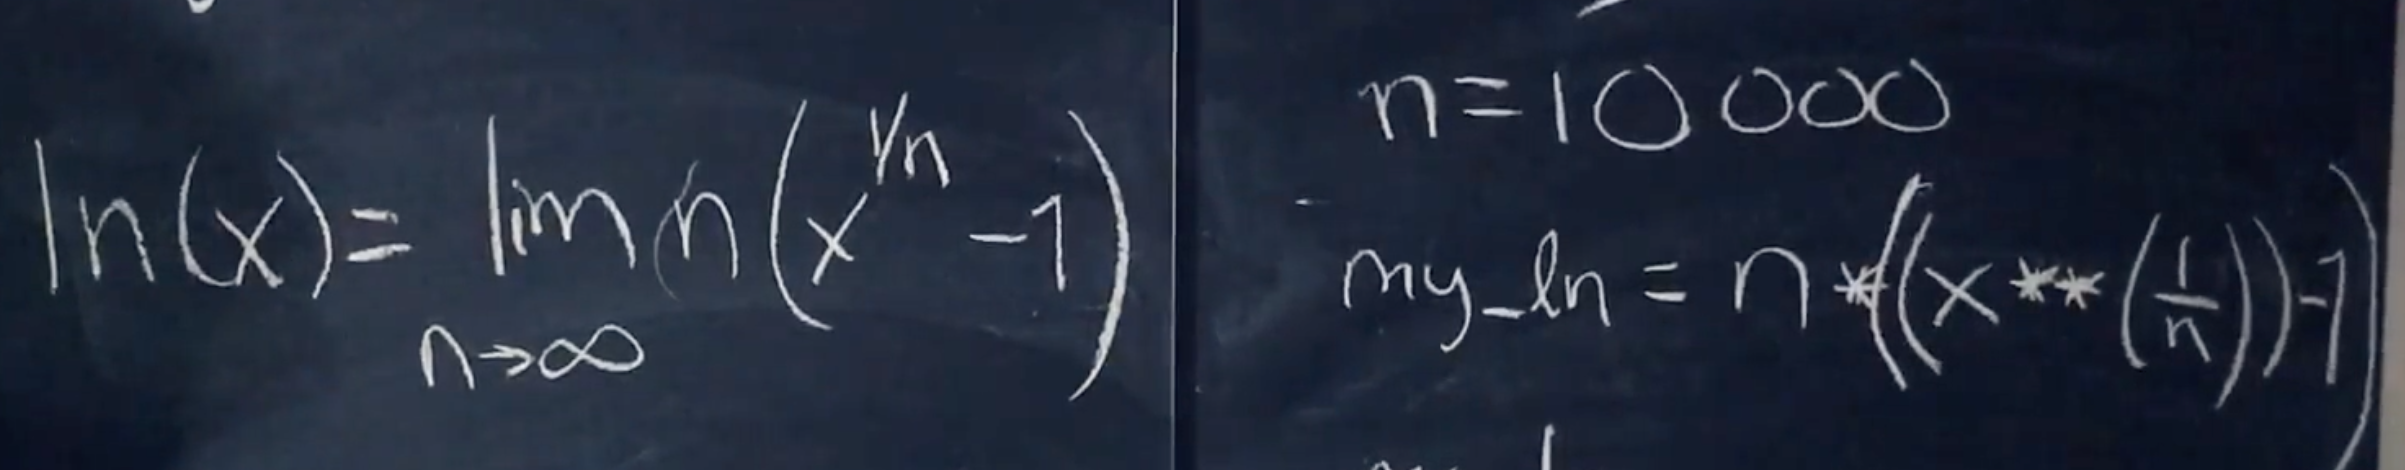 ln(x) = lim n(x^1/n - 1)
n→∞
n = 10 000
my_ln = n*((x**(1/n))-1)